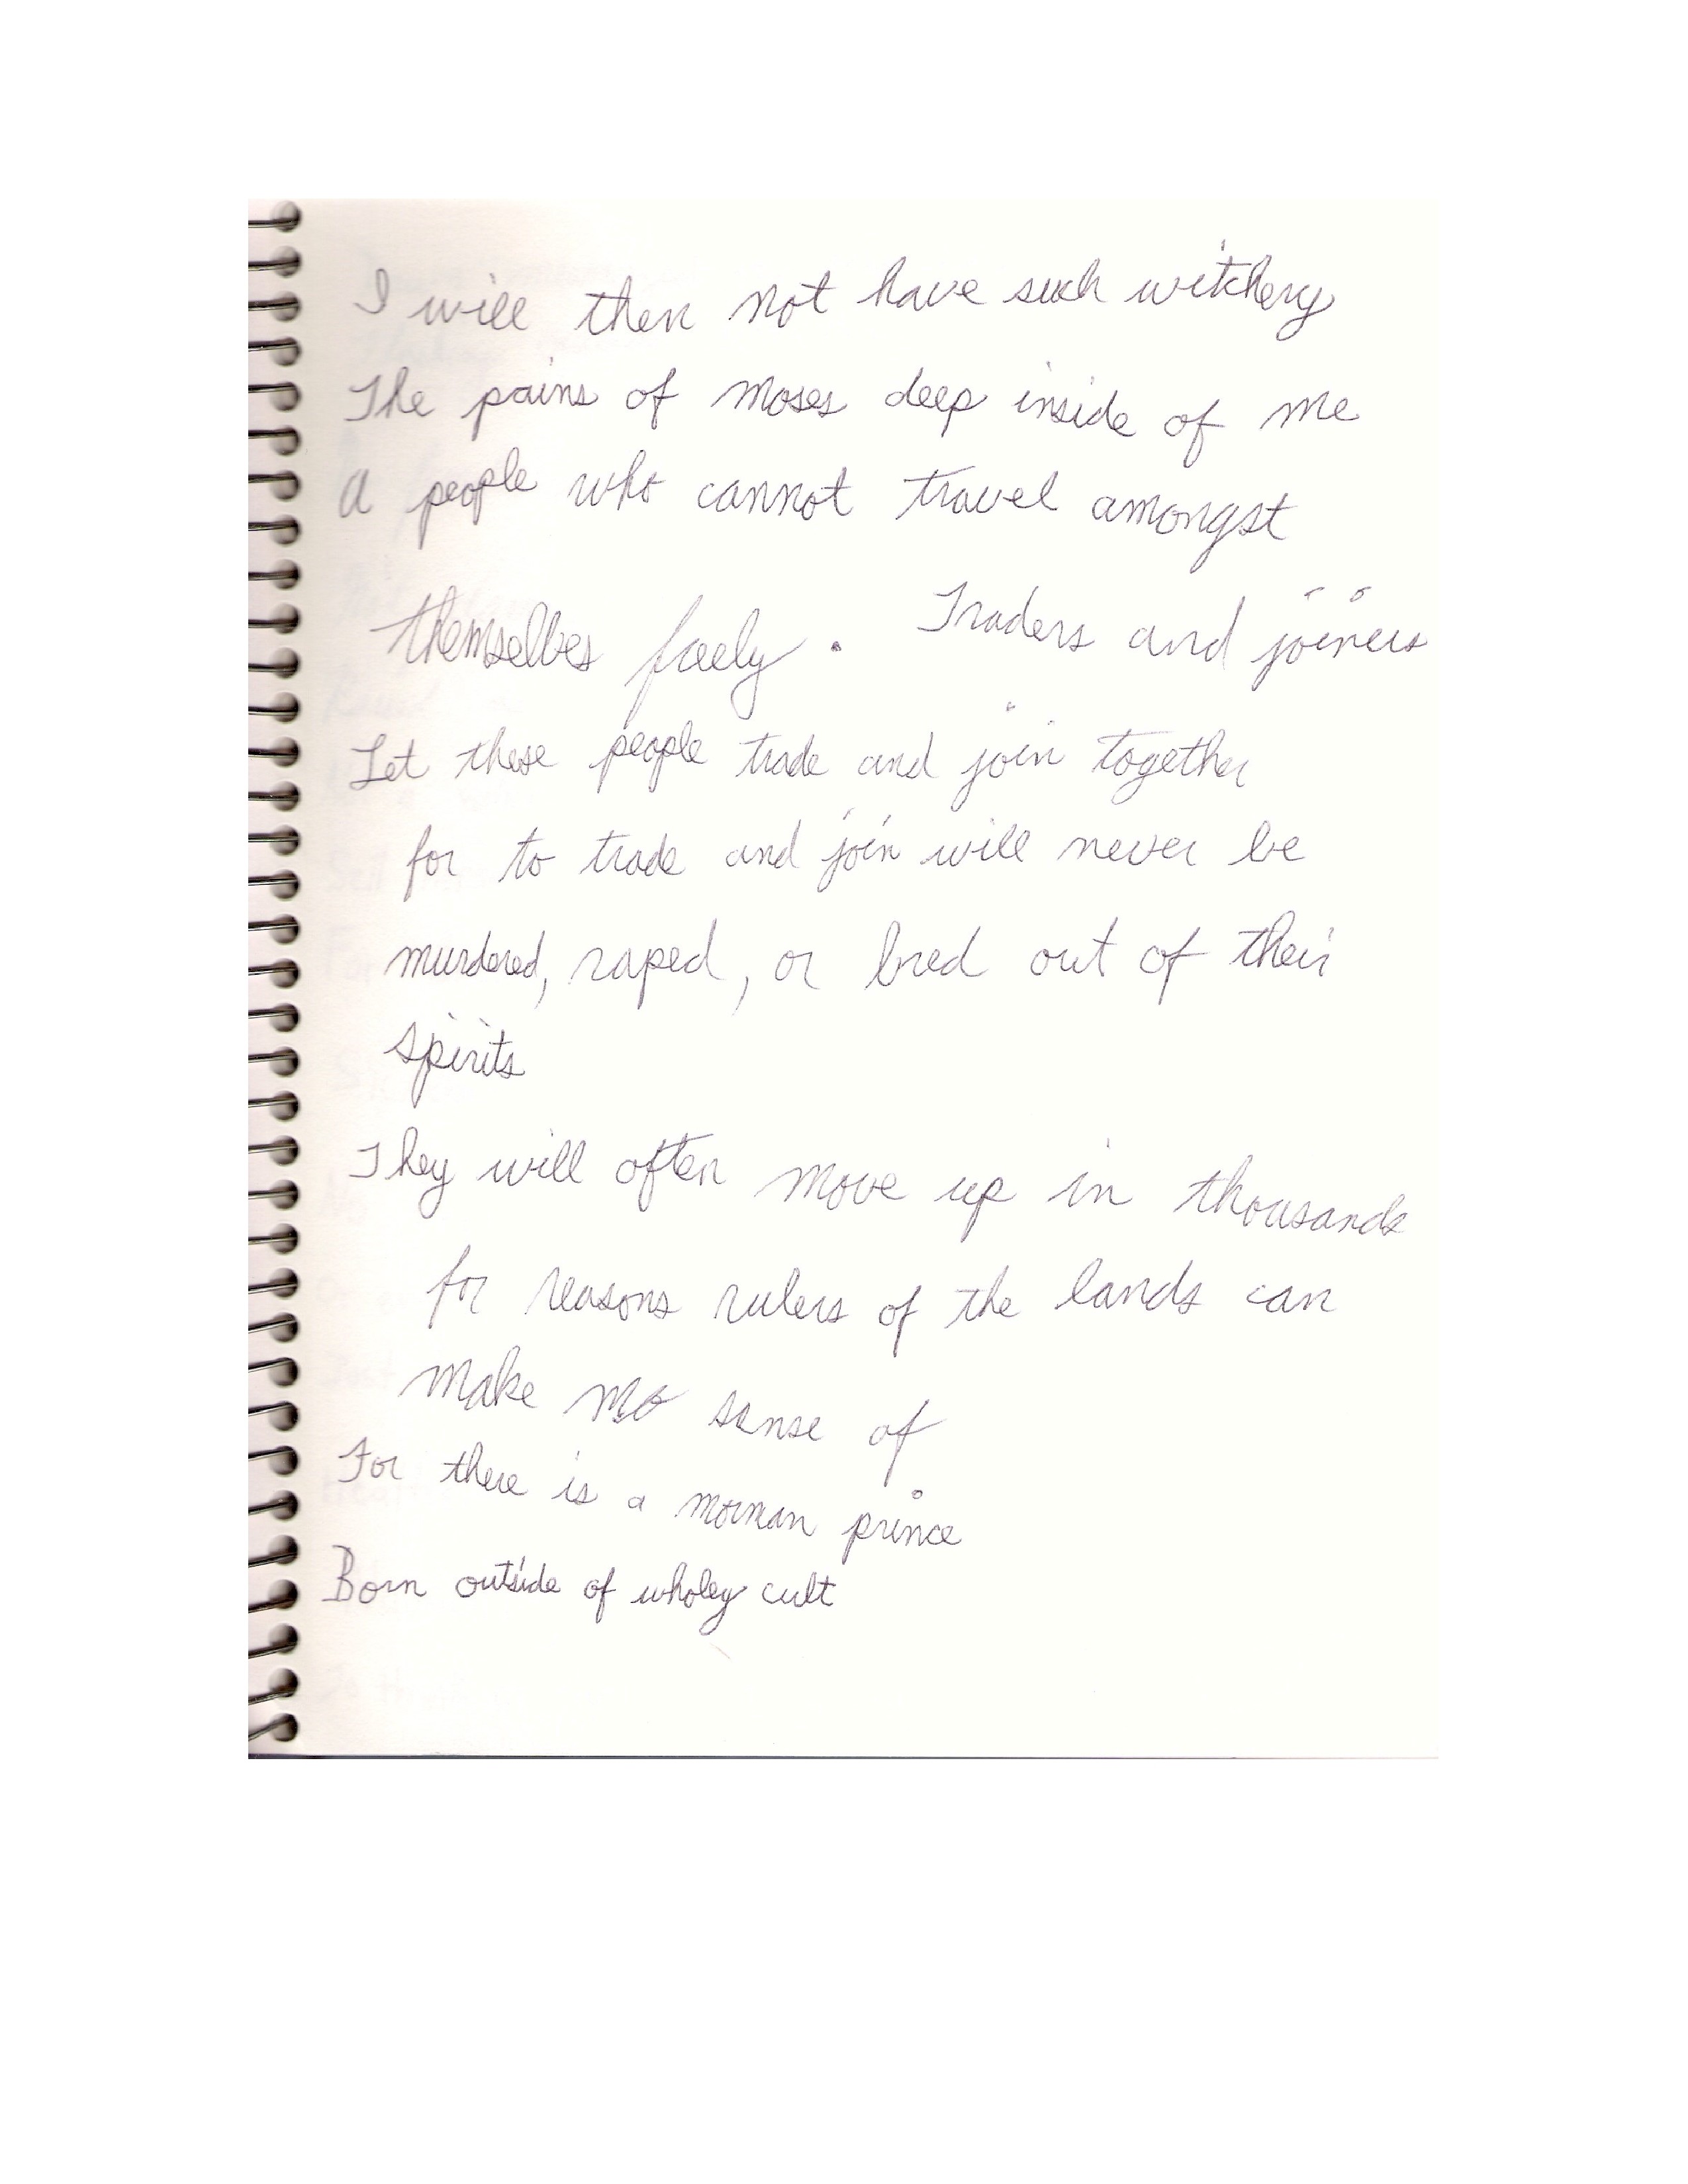 I will then not have such witchery
The pains of Moses deep inside of me
A people who cannot travel amongst
themselves freely. Traders and joiners
Let these people trade and join together
for to trade and join will never be
murdered, raped, or bred out of their
spirits
They will often move up in thousands
for reasons rulers of the lands can
make no sense of
For there is a morman prince
Born outside of wholey cult